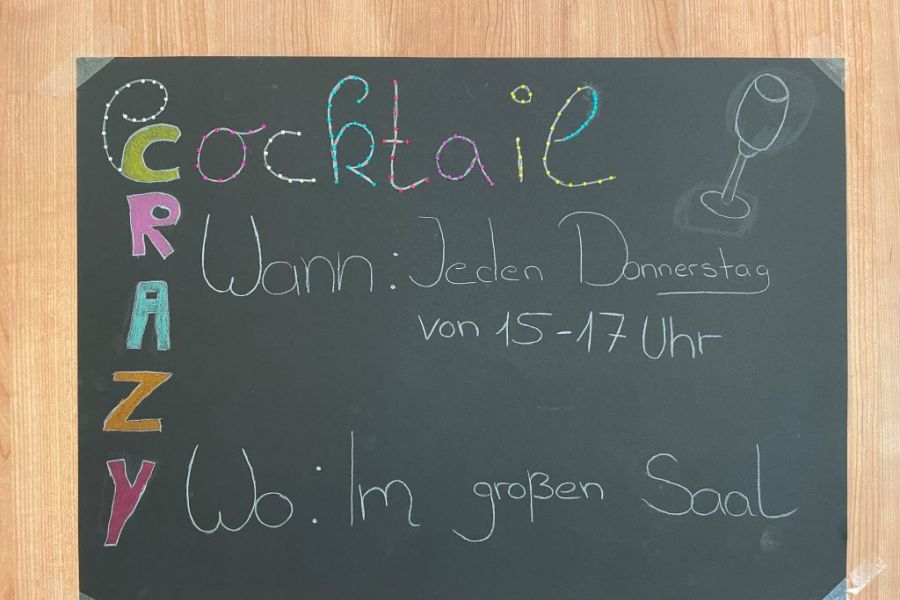 Cocktail
CRAZY
Wann: Jeden Donnerstag
von 15-17 Uhr
Wo: Im großen Saal